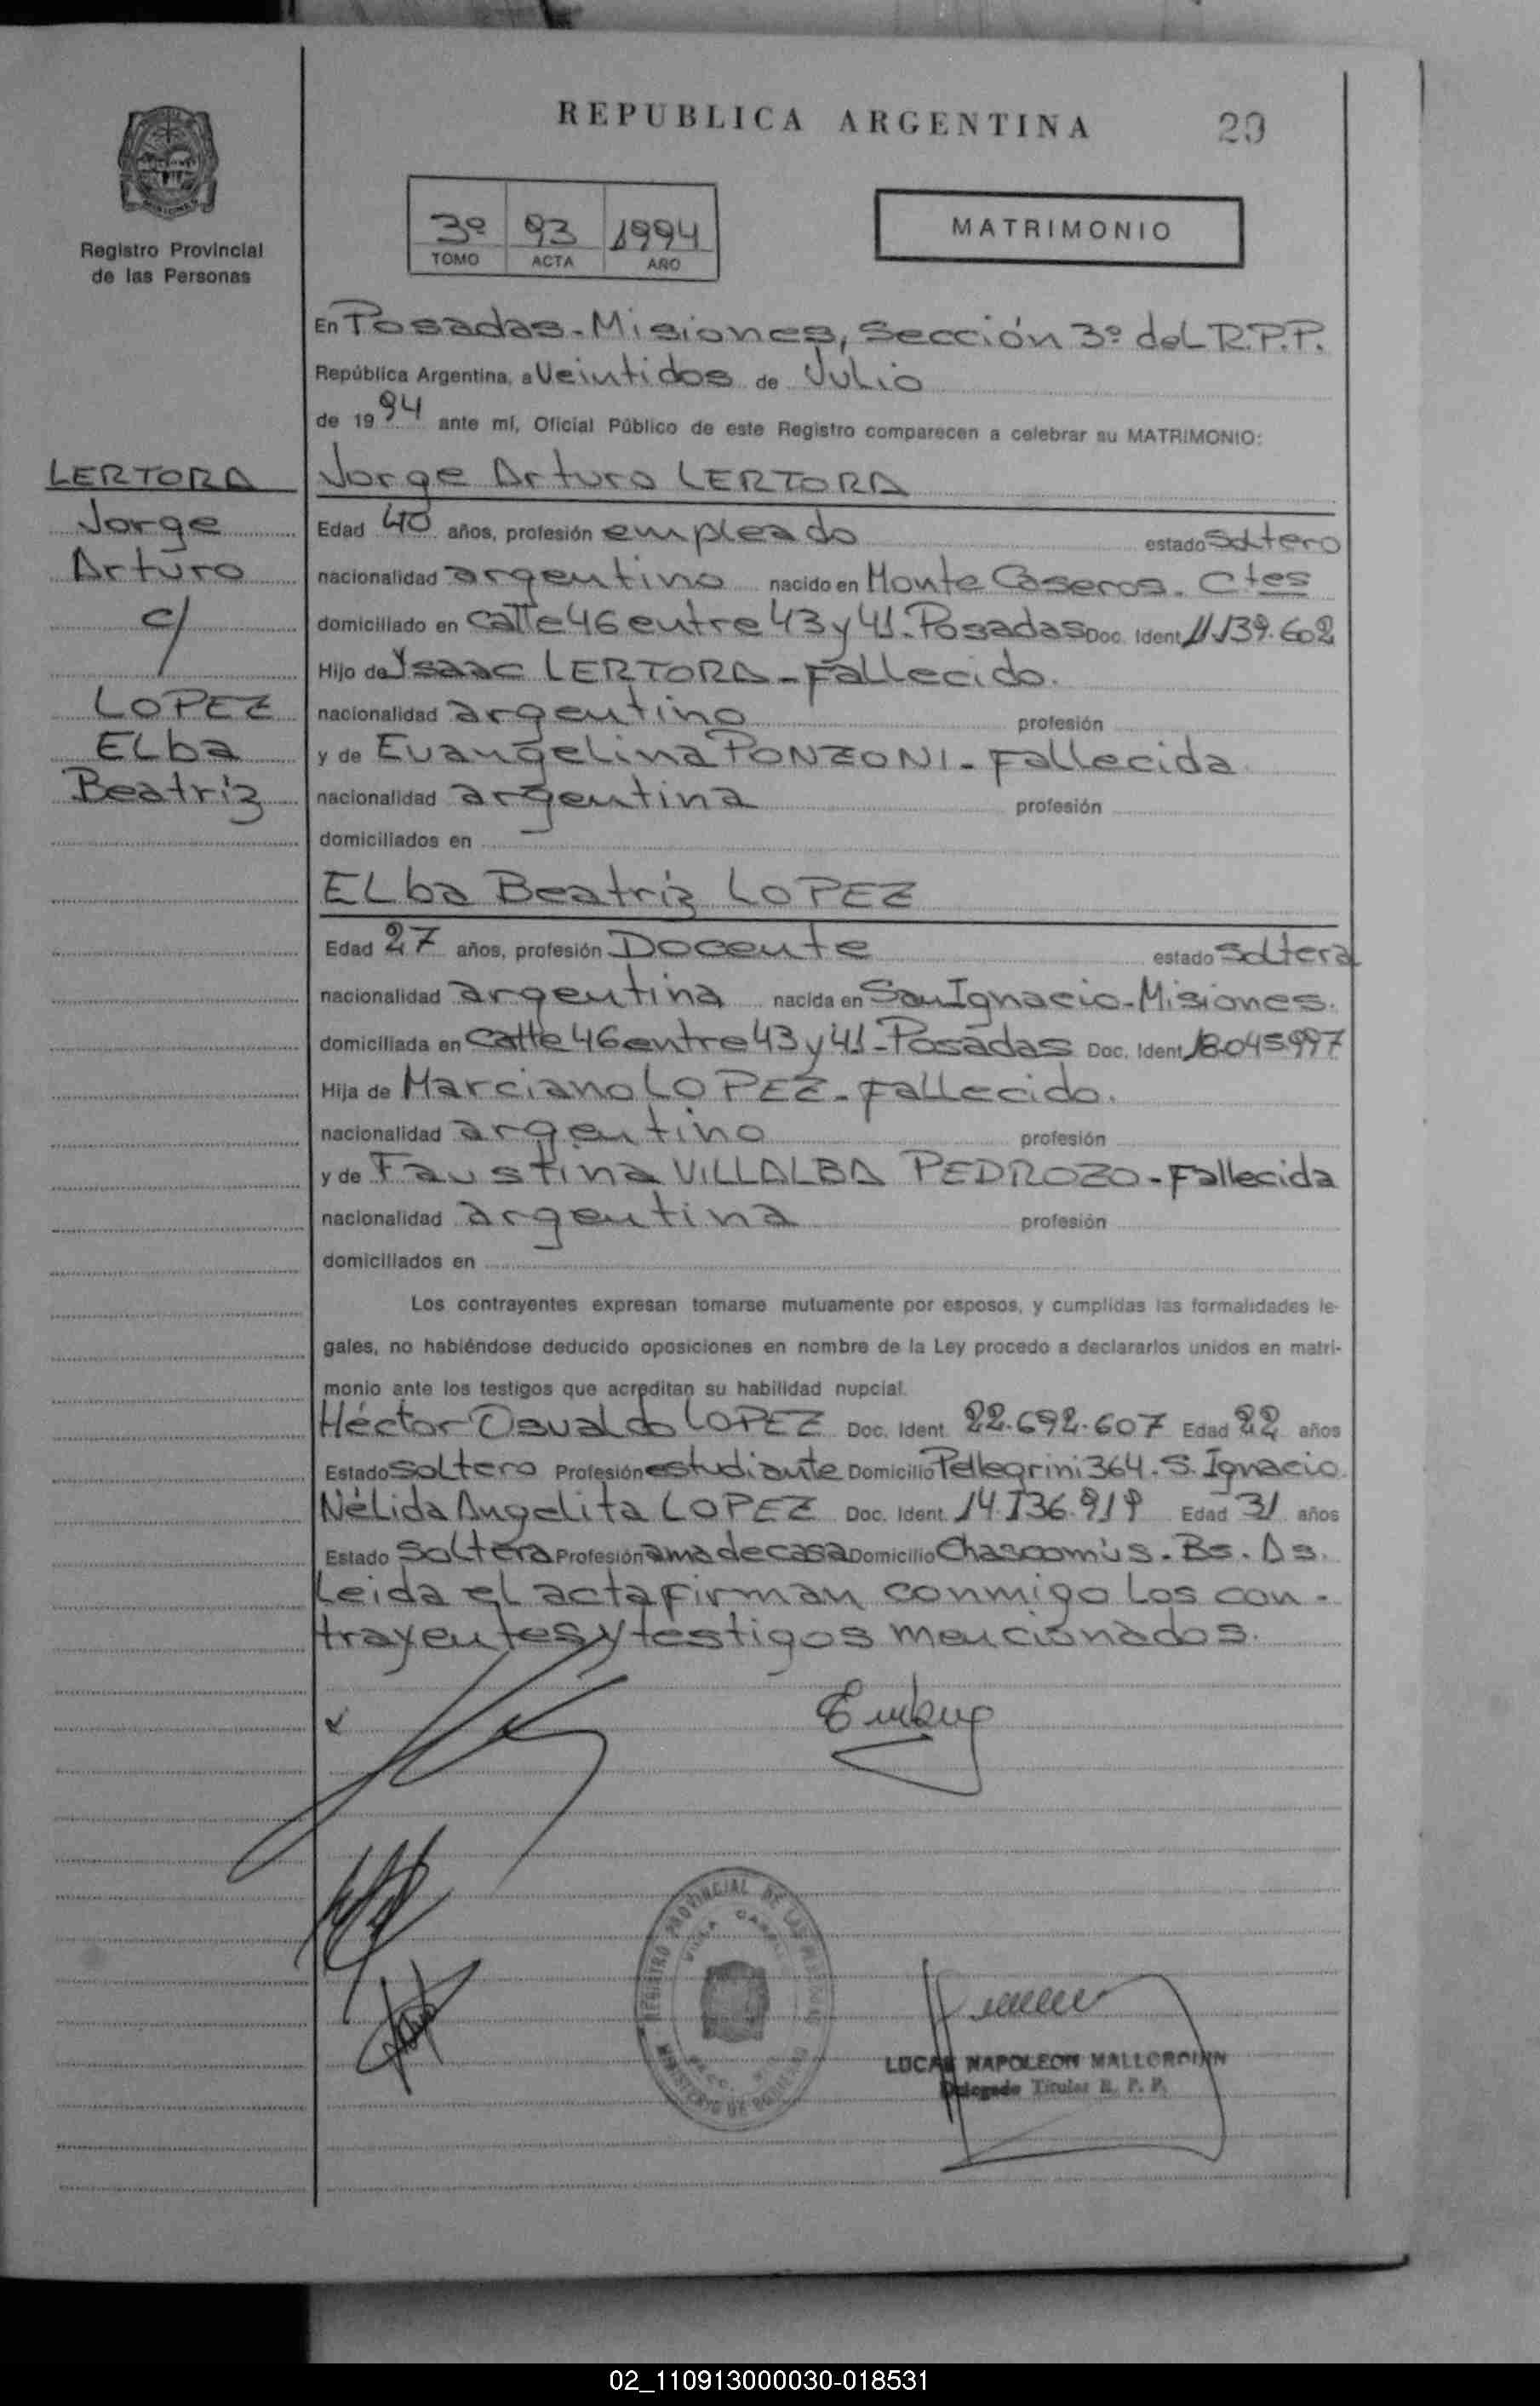 REPUBLICA ARGENTINA
29
Registro Provincial
de las Personas
3º 93 1994
TOMO ACTA AÑO
MATRIMONIO
En Posadas-Misiones, Sección 3º del R.P.P.
República Argentina, a Veintidos de Julio
de 1994 ante mí, Oficial Público de este Registro comparecen a celebrar su MATRIMONIO:
LERTORA
Jorge
Arturo
c/
LOPEZ
Elba
Beatriz
Jorge Arturo LERTORA
Edad 40 años, profesión empleado estado soltero
nacionalidad argentino nacido en Monte Caseros. Ctes
domiciliado en calle 46 entre 43 y 41-Posadas Doc. Ident. 11.139.602
Hijo de Ysaac LERTORA-Fallecido.
nacionalidad argentino profesión
y de Evangelina PONZONI-Fallecida
nacionalidad argentina profesión
domiciliados en
Elba Beatriz LOPEZ
Edad 27 años, profesión Docente estado soltera
nacionalidad argentina nacida en San Ignacio-Misiones.
domiciliada en calle 46 entre 43 y 41-Posadas Doc. Ident. 18.045.997
Hija de Marciano LOPEZ-Fallecido.
nacionalidad argentino profesión
y de Faustina VILLALBA PEDROZO-Fallecida
nacionalidad argentina profesión
domiciliados en
Los contrayentes expresan tomarse mutuamente por esposos, y cumplidas las formalidades le-
gales, no habiéndose deducido oposiciones en nombre de la Ley procedo a declararlos unidos en matri-
monio ante los testigos que acreditan su habilidad nupcial.
Héctor Osvaldo LOPEZ Doc. Ident. 22.692.607 Edad 22 años
Estado soltero Profesión estudiante Domicilio Pellegrini 364. S. Ignacio.
Nélida Angelita LOPEZ Doc. Ident. 14.136.919 Edad 31 años
Estado soltera Profesión ama de casa Domicilio Chascomús. Bs. As.
Leida el acta firman conmigo los con-
trayentes y testigos mencionados.
REGISTRO PROVINCIAL DE LAS PERSONAS
MINISTERIO DE GOBIERNO
LUCAS NAPOLEON
Delegado Titular R. P. P.
02_110913000030-018531